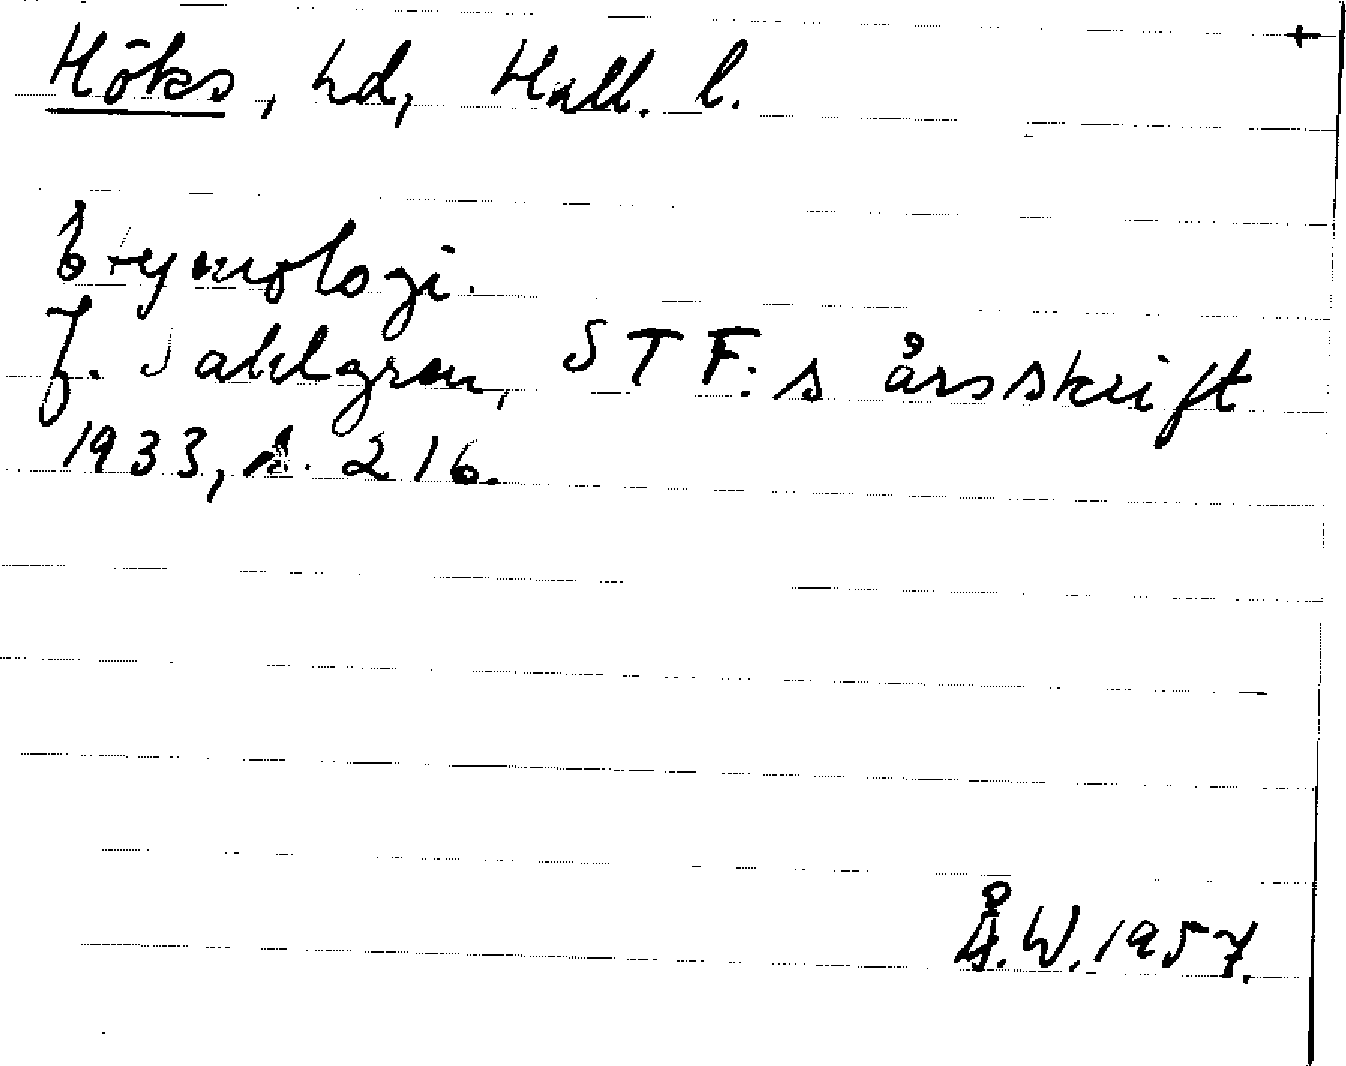 +
Höks, hd, Hall. l.
Etymologi.
J. Sahlgren, STF:s årsskrift
1933, s. 216.
Å.W. 1957.